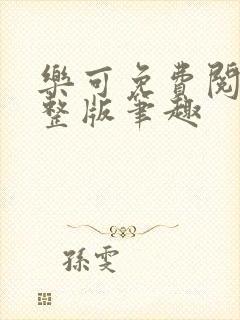 樂可免費閱
整版筆趣
孫雯